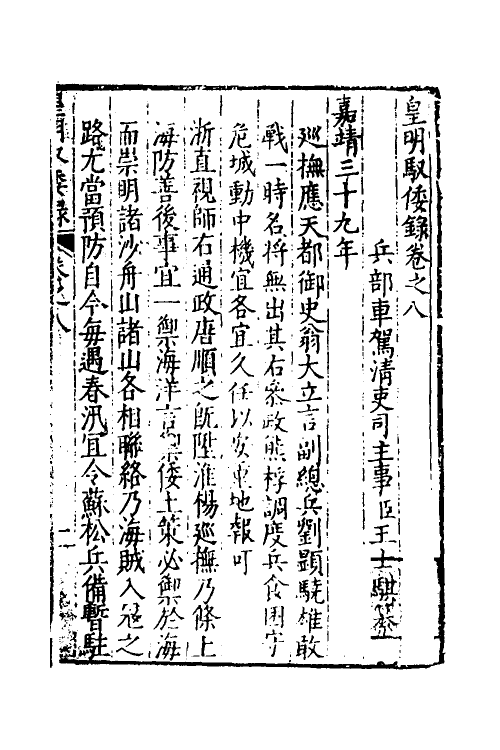 皇明馭倭錄卷之八
兵部車駕清吏司主事臣王士騏纂
嘉靖三十九年
巡撫應天都御史翁大立言副總兵劉顯驍雄敢
戰一時名將無出其右叅政熊桴調度兵食困守
危城動中機宜各宜久任以安重地報可
浙直視師右通政唐順之既陞淮楊巡撫乃條上
海防善後事宜一禦海洋言禦倭上策必禦於海
而崇明諸沙舟山諸山各相聯絡乃海賊入冦之
路尤當預防自今每遇春汛宜令蘇松兵備暫駐
皇明馭倭錄 卷之八 一